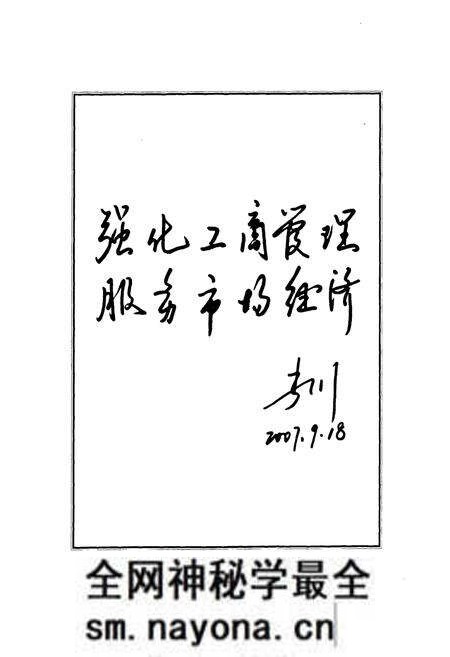 强化工商管理
服务市场经济
2007.9.18
全网神秘学最全
sm.nayona.cn